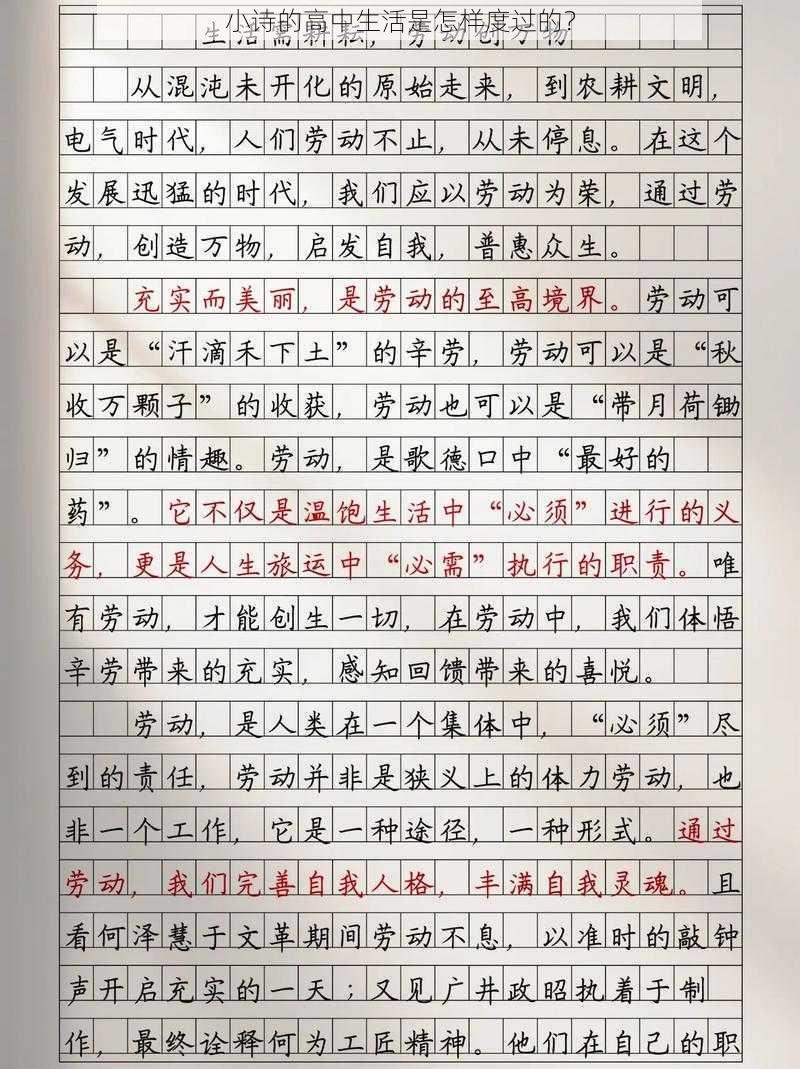 小诗的高中生活是怎样度过的？
生活需耕耘，劳动创万物
从混沌未开化的原始走来，到农耕文明，
电气时代，人们劳动不止，从未停息。在这个
发展迅猛的时代，我们应以劳动为荣，通过劳
动，创造万物，启发自我，普惠众生。
充实而美丽，是劳动的至高境界。劳动可
以是“汗滴禾下土”的辛劳，劳动可以是“秋
收万颗子”的收获，劳动也可以是“带月荷锄
归”的情趣。劳动，是歌德口中“最好的
药”。它不仅是温饱生活中“必须”进行的义
务，更是人生旅运中“必需”执行的职责。唯
有劳动，才能创生一切，在劳动中，我们体悟
辛劳带来的充实，感知回馈带来的喜悦。
劳动，是人类在一个集体中，“必须”尽
到的责任，劳动并非是狭义上的体力劳动，也
非一个工作，它是一种途径，一种形式。通过
劳动，我们完善自我人格，丰满自我灵魂。且
看何泽慧于文革期间劳动不息，以准时的敲钟
声开启充实的一天；又见广井政昭执着于制
作，最终诠释何为工匠精神。他们在自己的职